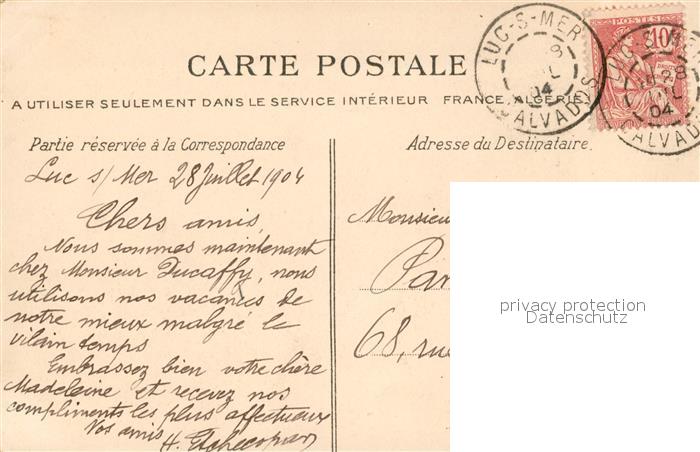 CARTE POSTALE
A UTILISER SEULEMENT DANS LE SERVICE INTÉRIEUR FRANCE, ALGÉRIE
LUC-S-MER
04
CALVADOS
POSTES
10
LUC-S-MER
28
04
CALVADOS
Partie réservée à la Correspondance
Luc s/ Mer 28 Juillet 1904
Chers amis,
Nous sommes maintenant
chez Monsieur Ducaffy, nous
utilisons nos vacances de
notre mieux malgré le
vilain temps
Embrassez bien votre chère
Madeleine et recevez nos
compliments les plus affectueux
Vos amis
H. Etchecopar
Adresse du Destinataire
Monsieu
Par
68, rue
privacy protection
Datenschutz